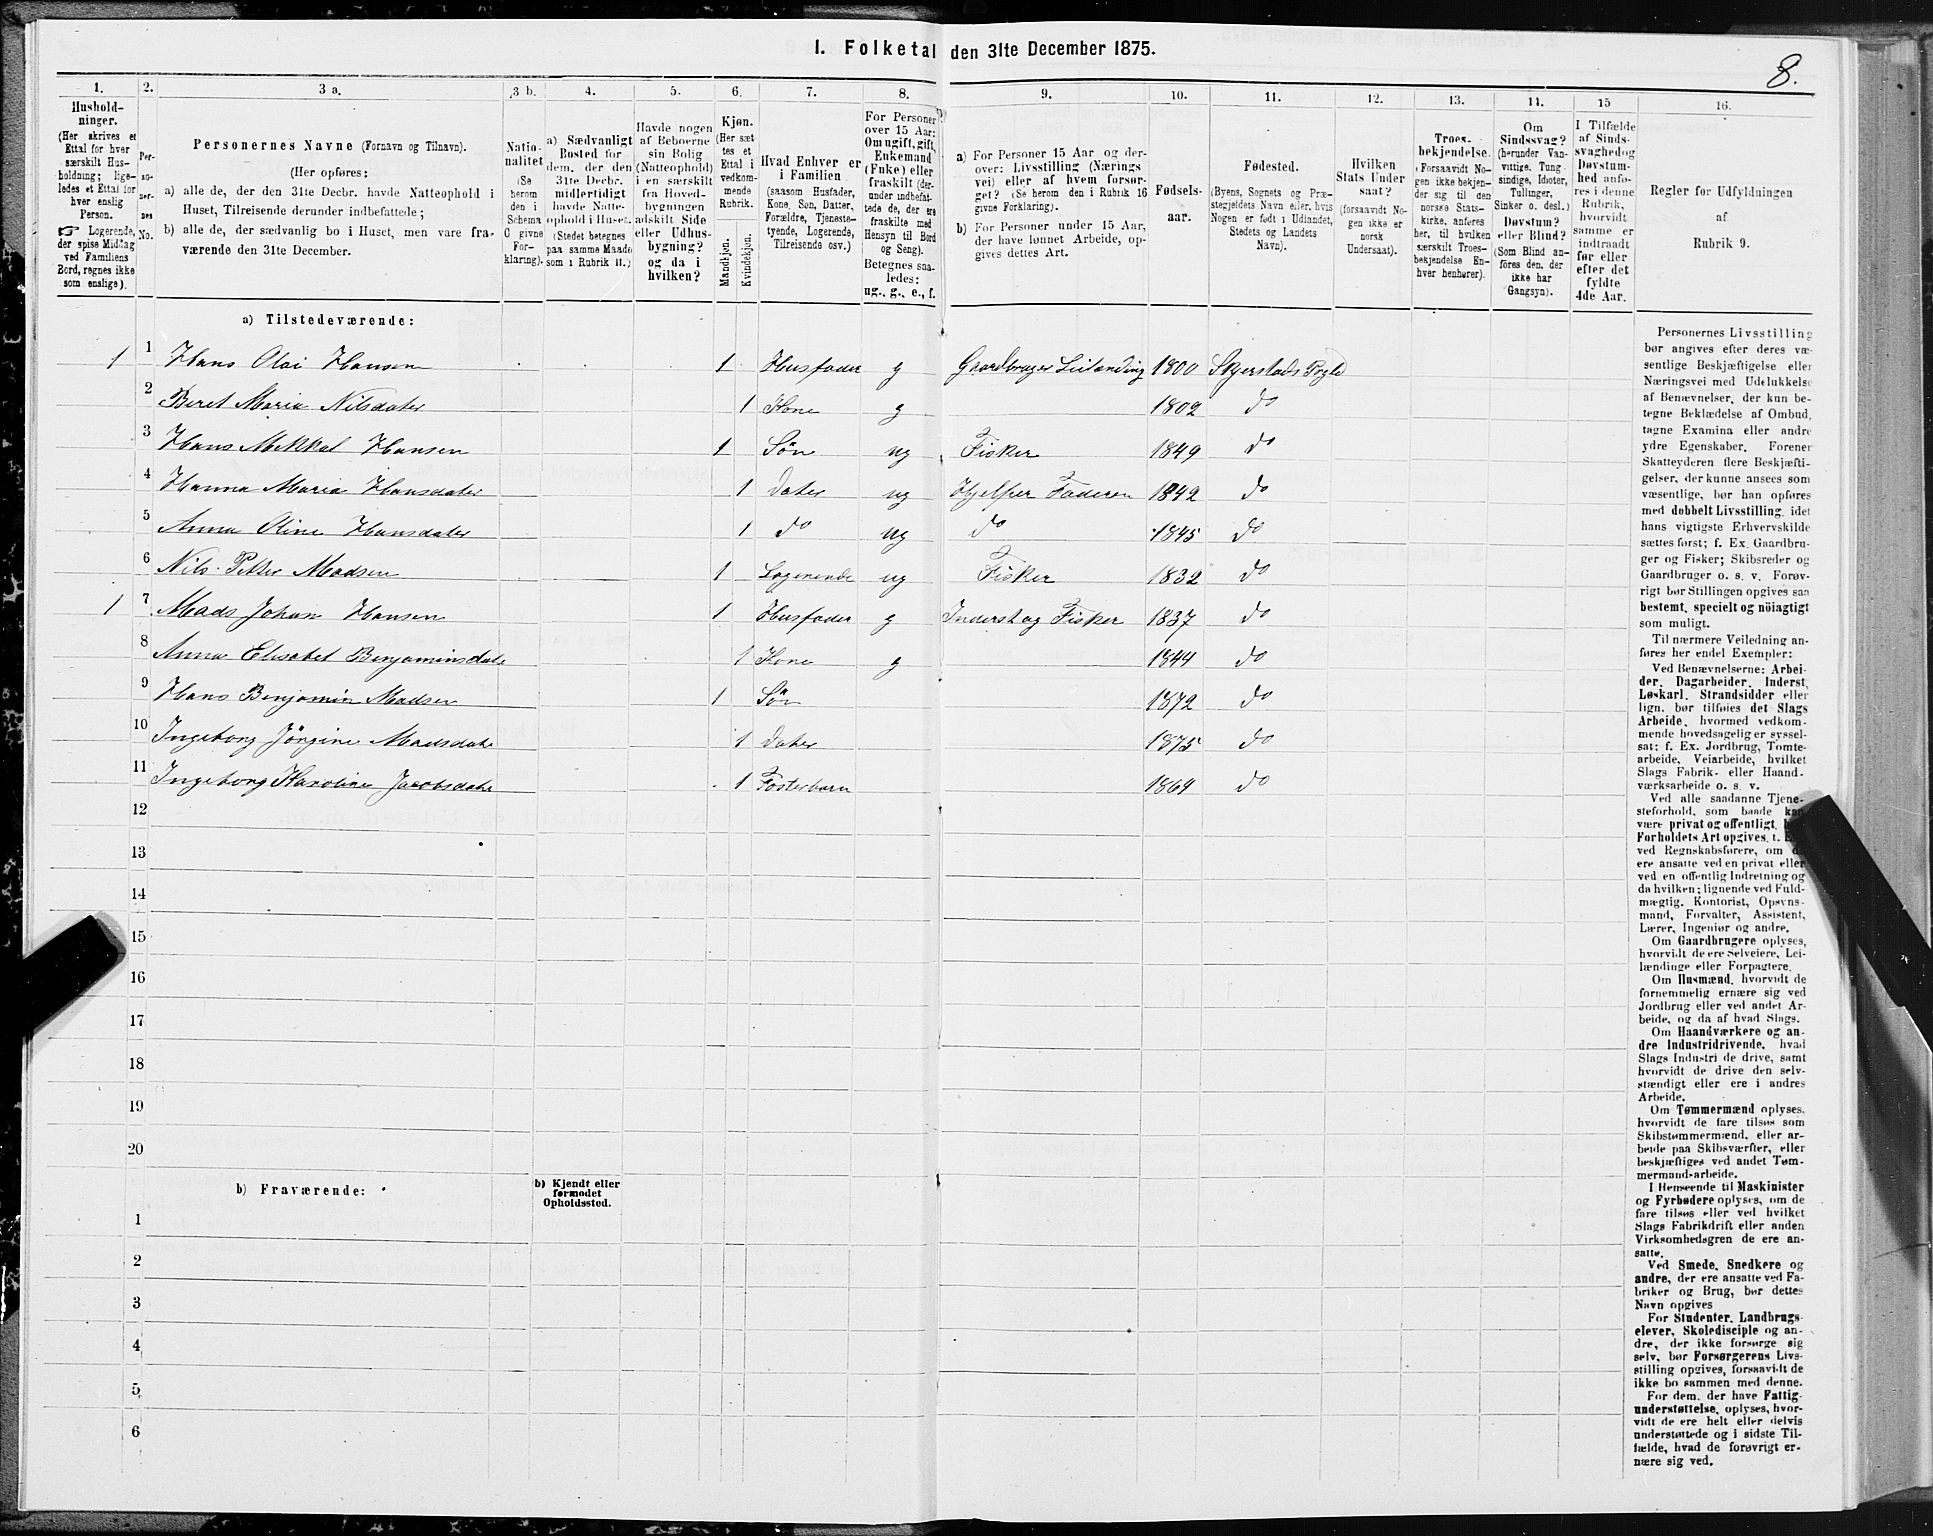 8.
I. Folketal den 31te December 1875.
1. 2. 3 a. 3 b. 4. 5. 6. 7. 8. 9. 10. 11. 12. 13. 14. 15 16.
Hushold-
ninger.
(Her skrives et
Ettal for hver
særskilt Hus-
holdning; lige-
ledes et Ettal for
hver enslig
Person.
☞ Logerende,
der spise Middag
ved Familiens
Bord, regnes ikke
som enslige).
Per-
so-
ner-
nes
No.
Personernes Navne (Fornavn og Tilnavn).
(Her opføres:
a) alle de, der den 31te Decbr. havde Natteophold i
Huset, Tilreisende derunder indbefattede;
b) alle de, der sædvanlig bo i Huset, men vare fra-
værende den 31te December.
Natio-
nalitet
(Se
herom
den i
Schema
C givne
For-
klaring).
a) Sædvanligt
Bosted for
dem, der den
31te Decbr.
midlertidigt
havde Natte-
ophold i Huset.
(Stedet betegnes
paa samme Maade
som i Rubrik 11.)
Havde nogen
af Beboerne
sin Bolig
(Natteophold)
i en særskilt
fra Hoved-
bygningen
adskilt Side
eller Udhus-
bygning?
og da i
hvilken?
Kjøn.
(Her sæt
tes et
Ettal i
vedkom-
mende
Rubrik.
Mandkjøn.
Kvindekjøn.
Hvad Enhver er
i Familien
(saasom Husfader,
Kone, Søn, Datter,
Forældre, Tjeneste-
tyende, Logerende,
Tilreisende osv.)
For Personer
over 15 Aar:
Om ugift, gift,
Enkemand
(Enke) eller
fraskilt (der-
under indbefat-
tede de, der ere
fraskilte med
Hensyn til Bord
og Seng).
Betegnes saa-
ledes:
ug., g., e., f.
a) For Personer 15 Aar og der-
over: Livsstilling (Nærings
vei) eller af hvem forsør-
get? (Se herom den i Rubrik 16
givne Forklaring).
b) For Personer under 15 Aar,
der have lønnet Arbeide, op-
gives dettes Art.
Fødsels-
aar.
Fødested.
(Byens, Sognets og Præ-
stegjeldets Navn eller, hvis
Nogen er født i Udlandet,
Stedets og Landets
Navn).
Hvilken
Stats Under
saat?
(forsaavidt No-
gen ikke er
norsk
Undersaat).
Troes-
bekjendelse.
(Forsaavidt No-
gen ikke bekjen-
der sig til den
norske Stats-
kirke, anføres
her, til hvilken
særskilt Troes-
bekjendelse En-
hver henhører).
Om
Sindssvag?
(herunder Van-
vittige, Tung
sindige, Idioter,
Tullinger,
Sinker o. desl.)
Døvstum?
eller Blind?
(Som Blind an-
føres den, der
ikke har
Gangsyn).
I Tilfælde
af Sinds-
svaghed og
Døvstum-
hed anfø-
res i denne
Rubrik,
hvorvidt
samme er
indtraadt
før eller
efter det
fyldte
4de Aar.
Regler for Udfyldningen
af
Rubrik 9.
a) Tilstedeværende:
1 1 Hans Olai Hansen 1 Husfader g Gaardbruger Leilænding 1800 Skjerstads
2 Beret Maria Nilsdater 1 Kone g 1802 do
3 Hans Mekkal Hansen 1 Søn ug Fisker 1849 do
4 Hanna Maria Hansdater 1 Dater ug Hjelper Faderen 1842 do
5 Anna Oline Hansdater 1 do ug do 1845 do
6 Nils Petter Madsen 1 Logerende ug Fisker 1832 do
1 7 Mads Johan Hansen 1 Husfader g Inderst og Fisker 1837 do
8 Anna Elisabet Benjaminsdate 1 Kone g 1844 do
9 Hans Benjamin Madsen 1 Søn 1872 do
10 Ingeborg Jörgine Madsdate 1 Dater 1875 do
11 Ingeborg Karoline Jacobsdater 1 Fosterbarn 1864 do
12
13
14
15
16
17
18
19
20
b) Fraværende:
b) Kjendt eller
formodet
Opholdssted.
1
2
3
4
5
6
Personernes Livsstilling
bør angives efter deres væ-
sentlige Beskjæftigelse eller
Næringsvei med Udelukkelse
af Benævnelser, der kun be-
tegne Beklædelse af Ombud,
tagne Examina eller andre
ydre Egenskaber. Forener
Skatteyderen flere Beskjæfti-
gelser, der kunne ansees som
væsentlige, bør han opføres
med dobbelt Livsstilling, idet
hans vigtigste Erhvervskilde
sættes først; f. Ex. Gaardbru-
ger og Fisker; Skibsreder og
Gaardbruger o. s. v. Forøv-
rigt bør Stillingen opgives saa
bestemt, specielt og nöiagtigt
som muligt.
Til nærmere Veiledning an-
føres her endel Exempler:
Ved Benævnelserne: Arbei-
der, Dagarbeider, Inderst,
Løskarl, Strandsidder eller
lign. bør tilføies det Slags
Arbeide, hvormed vedkom-
mende hovedsagelig er syssel-
sat; f. Ex. Jordbrug, Tomte-
arbeide, Veiarbeide, hvilket
Slags Fabrik- eller Haand-
værksarbeide o. s. v.
Ved alle saadanne Tjene-
steforhold, som baade kan
være privat og offentligt,
Forholdets Art opgives, f.
ved Regnskabsførere, om
ere ansatte ved en privat eller
ved en offentlig Indretning og
da hvilken; lignende ved Fuld-
mægtig, Kontorist, Opsyns-
mand, Forvalter, Assistent,
Lærer, Ingeniør og andre.
Om Gaardbrugere oplyses,
hvorvidt de ere Selveiere, Lei-
lændinge eller Forpagtere.
Om Husmænd, hvorvidt de
fornemmelig ernære sig ved
Jordbrug eller ved andet Ar-
beide, og da af hvad Slags.
Om Haandværkere og an-
dre Industridrivende, hvad
Slags Industri de drive, samt
hvorvidt de drive den selv-
stændigt eller ere i andres
Arbeide.
Om Tømmermænd oplyses,
hvorvidt de fare tilsøs som
Skibstømmermænd, eller ar-
beide paa Skibsværfter, eller
beskjæftiges ved andet Tøm-
mermandsarbeide.
I Henseende til Maskinister
og Fyrbødere oplyses, om de
fare tilsøs eller ved hvilket
Slags Fabrikdrift eller anden
Virksomhedsgren de ere an-
satte.
Ved Smede, Snedkere og
andre, der ere ansatte ved Fa-
briker og Brug, bør dettes
Navn opgives
For Studenter, Landbrugs-
elever, Skoledisciple og an-
dre, der ikke forsørge sig
selv, bør Forsørgerens Livs-
stilling opgives, forsaavidt de
ikke bo sammen med denne.
For dem, der have Fattig-
understøttelse, oplyses, hvor-
vidt de ere helt eller delvis
understøttede og i sidste Til-
fælde, hvad de forøvrigt er-
nære sig ved.